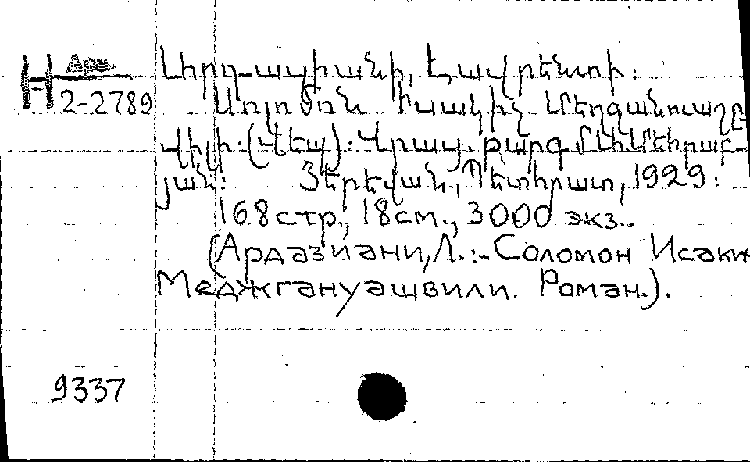 Арм.
Н 2-2789
Արդազիանի, Լավրենտի:
Սոլոմոն Իսակիչ Մեջղանուաշ
վիլի. (Վեպ): Վրաց. թարգ.
յան: Յերեվան, Պետհրատ, 1929:
168 стр., 18 см., 3000 экз..
(Ардазиани, Л.:- Соломон Исаки
Меджгануашвили. Роман.).
9337